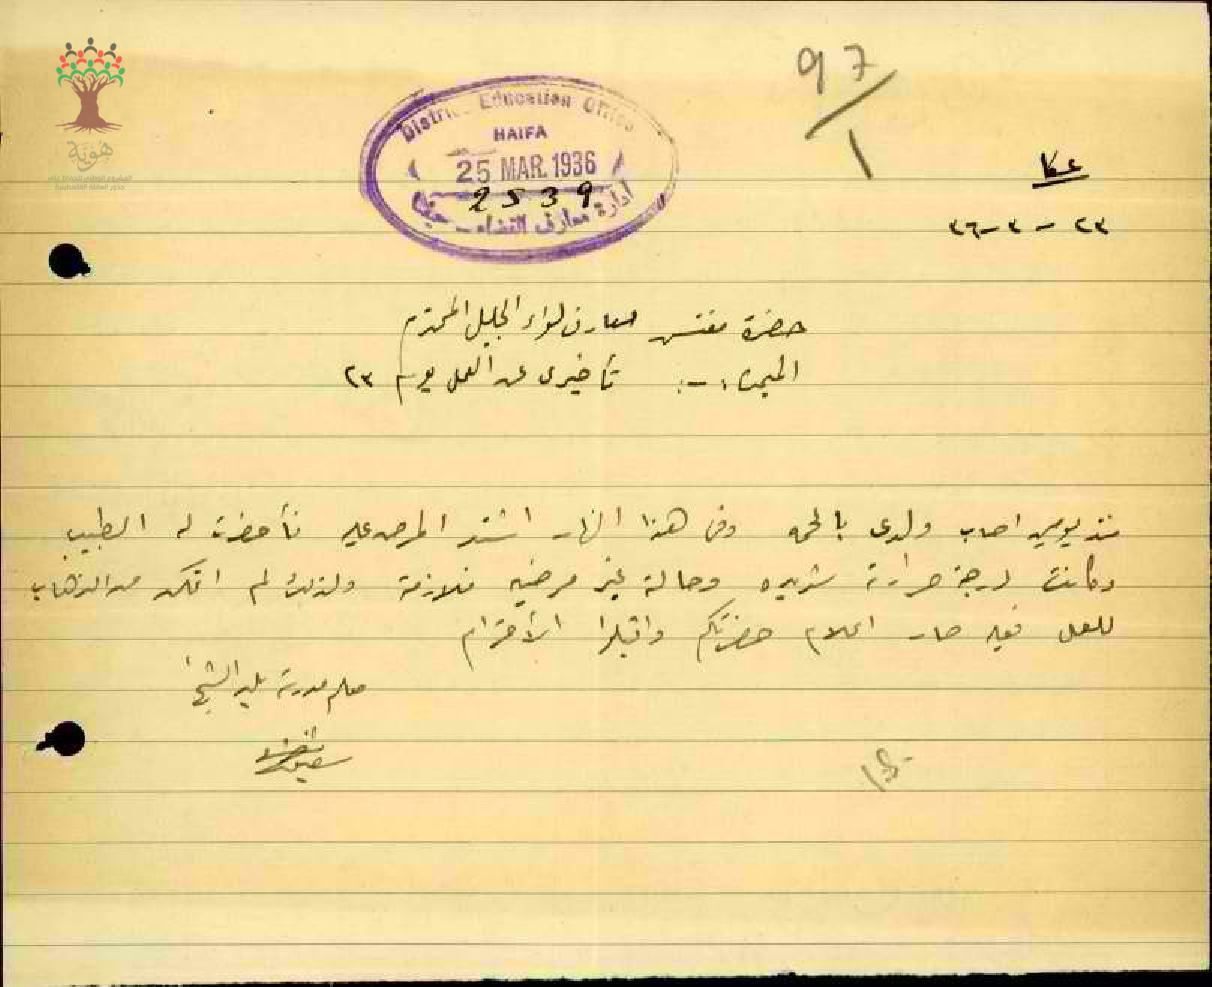 97/1
District Education Office
HAIFA
25 MAR. 1936
2539
ادارة معارف القضاء - حيفا
هوية
عكا
٢٣ - ٣ - ٣٦
حضرة مفتش معارف لواء الجليل المحترم
تأخيري عن العمل يوم ٢٣
منذ يومين اصاب ولدي بالحمى وفي هذا النهار اشتد المرض عليه فأحضرت له الطبيب
وكانت درجة حرارته شديده وحالة غير مرضيه ولذلك لم اتمكن من الذهاب
للعمل فعليه صار اعلام حضرتكم واقبلوا الأحترام
معلم مدرسة بلد الشيخ